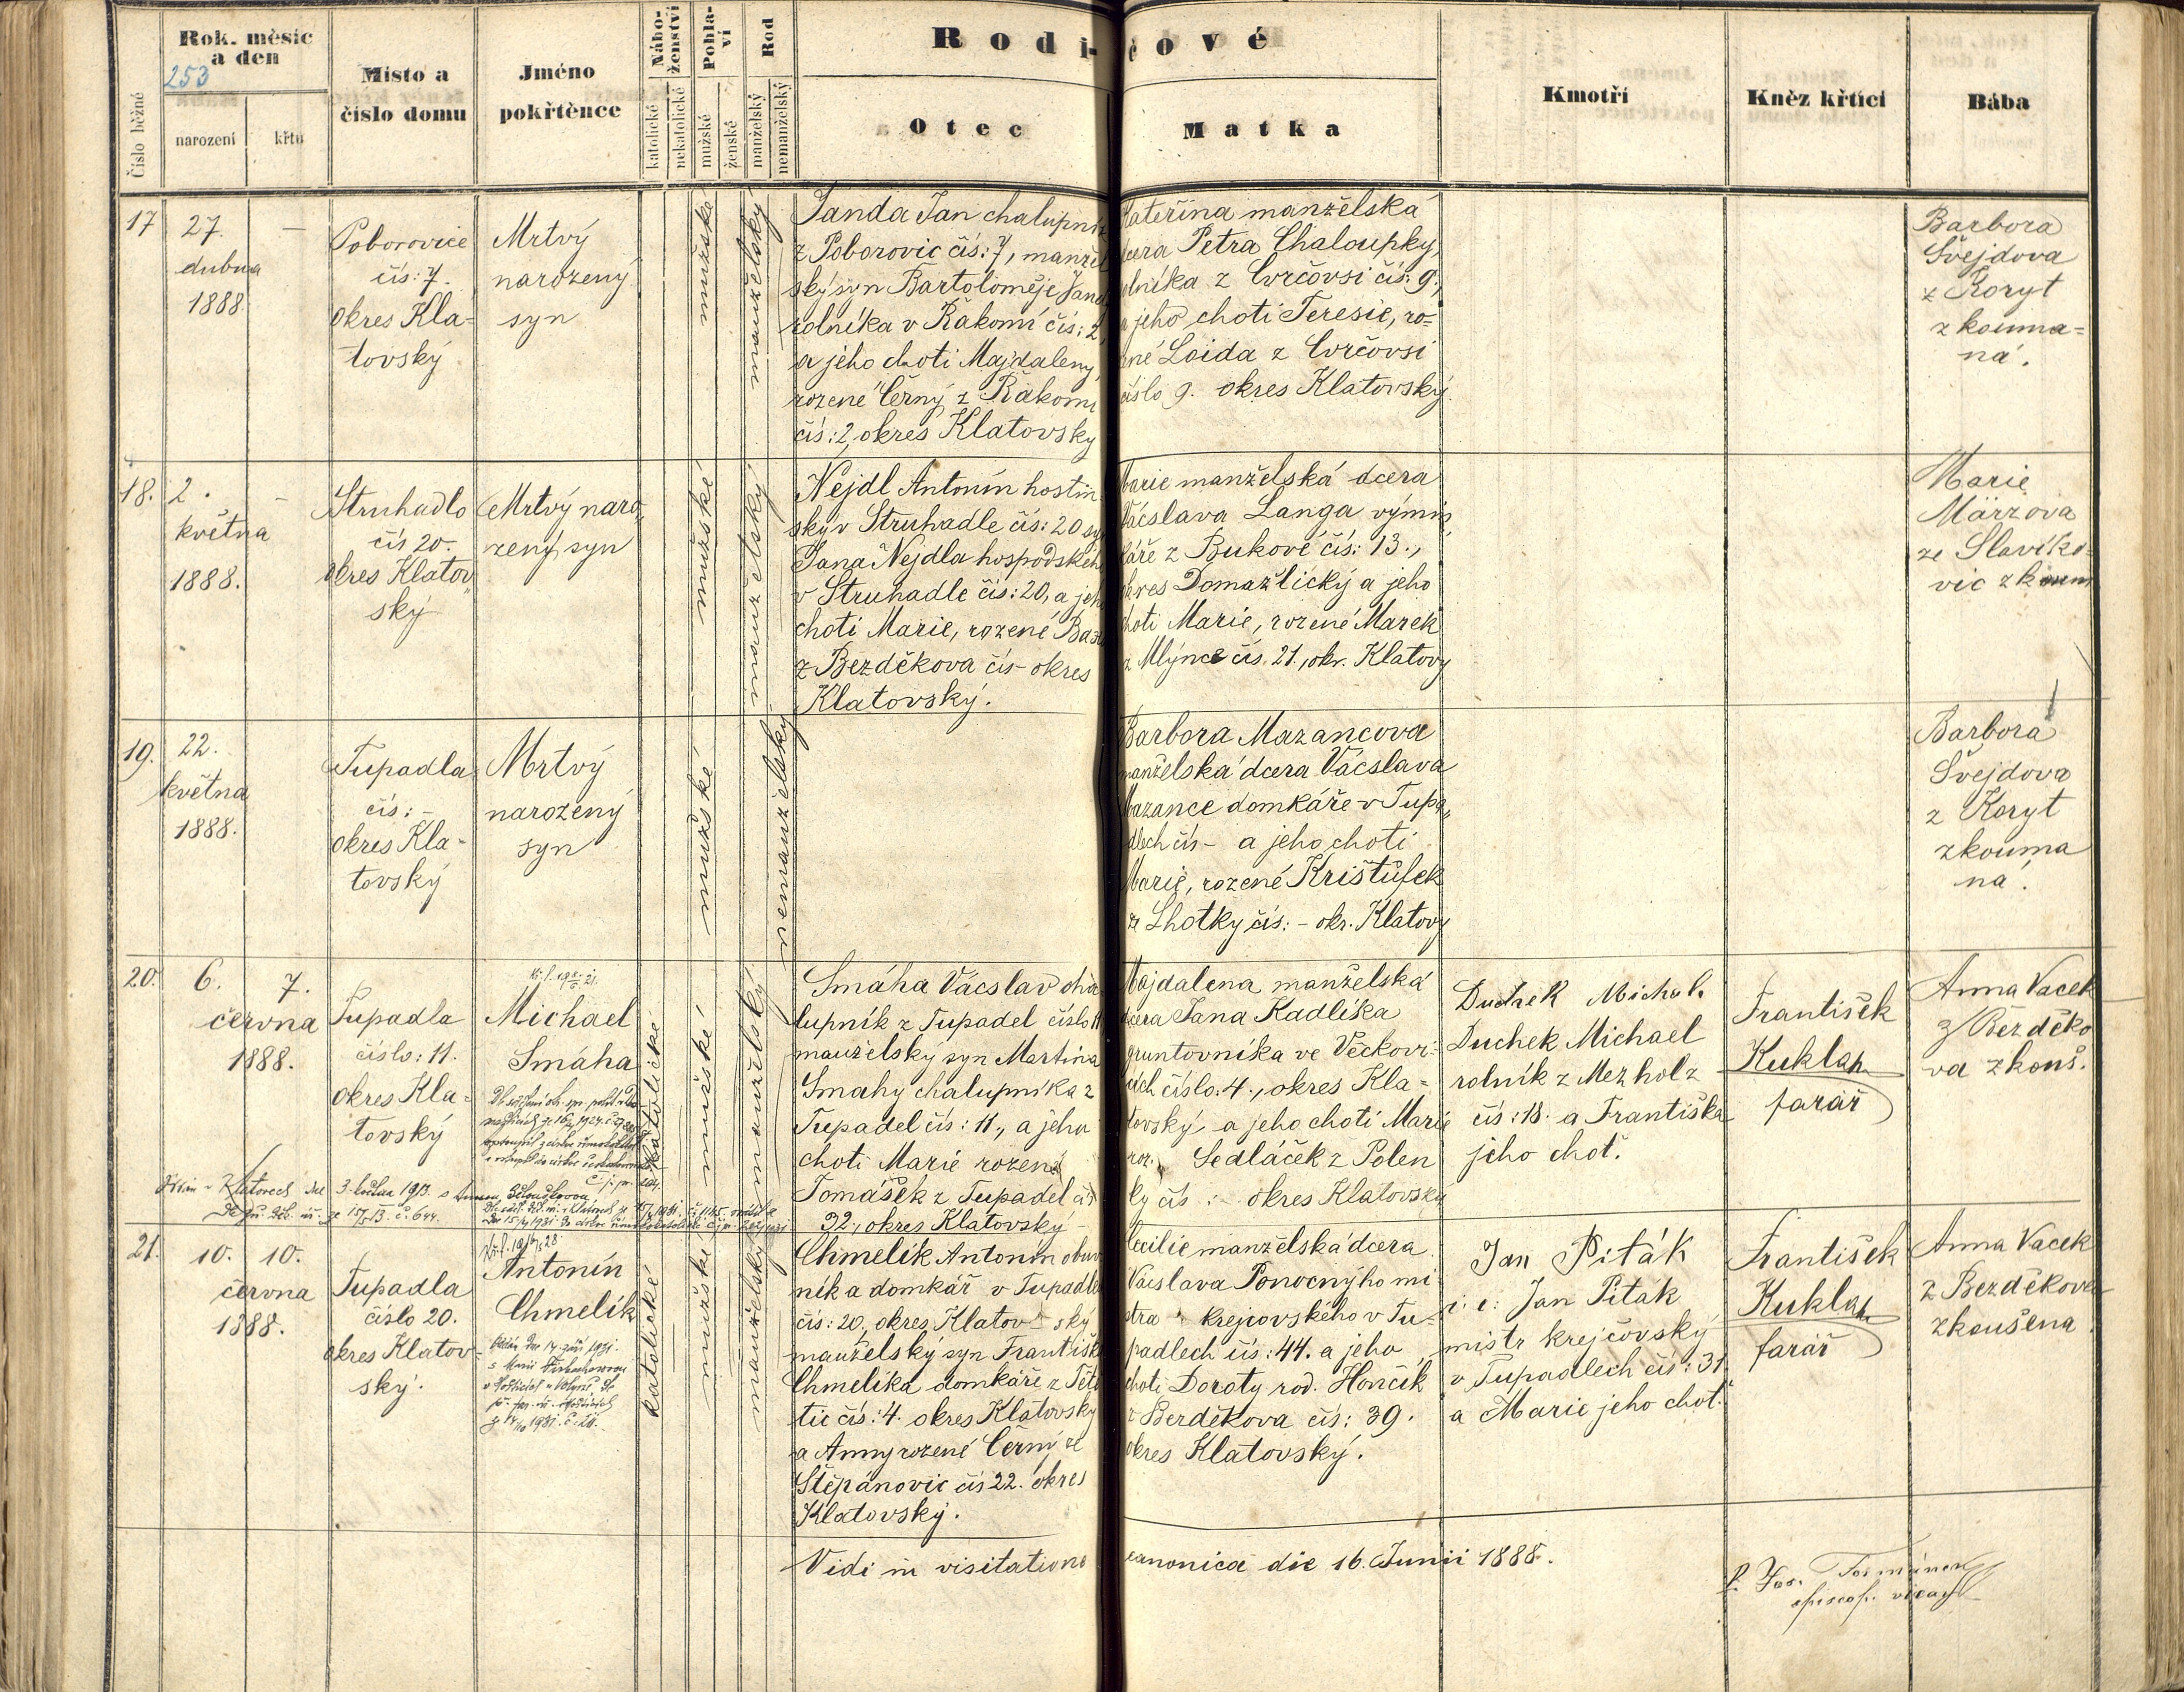 Rok, měsíc
a den
253
Číslo běžné
narození
křtu
Místo a
číslo domu
Jméno
pokřtěnce
Nábo-
ženství
katolické
nekatolické
Pohla-
ví
mužské
ženské
Rod
manželský
nemanželský
Rodi-čové
Otec
Matka
Kmotři
Kněz křtící
Bába
17
27.
dubna
1888
-
Poborovice
čís: 7.
okres Kla-
tovský
Mrtvý
narozený
syn
mužské
manželský
Janda Jan chalupník
z Poborovic čís: 7, manžel
ský syn Bartoloměje Jand
rolníka v Řakomi čís: 2,
a jeho choti Majdaleny,
rozené Černý z Řakomi
čís: 2, okres Klatovský
Kateřina manželská
dcera Petra Chaloupky,
rolníka z Vrčovsi čís: 9,
a jeho choti Teresie, ro-
zené Loida z Vrčovsi
číslo 9. okres Klatovský.
Barbora
Švejdova
z Koryt
zkouma-
ná.
18.
2.
května
1888.
-
Struhadlo
čís 20.
okres Klatov
ský
Mrtvý naro
zený syn
mužské
manželský
Nejdl Antonín hostin
ský v Struhadle čís: 20 sy
Jana Nejdla hospodskéh
v Struhadle čís: 20, a jeh
choti Marie, rozené
z Bezděkova čís - okres
Klatovský.
Marie manželská dcera
Václava Langa výmin
káře z Bukové čís: 13.,
okres Domažlický a jeho
choti Marie, rozené Marek
z Mlýnce čís. 21., okr. Klatovy
Marie
Märzova
ze Slavíko-
vic zkoum
19.
22.
května
1888.
Tupadla
čís: -
okres Kla-
tovský
Mrtvý
narozený
syn
mužské
nemanželský
Barbora Mazancova
manželská dcera Václava
Mazance domkáře v Tupa
dlech čís - a jeho choti
Marie, rozené Krištůfek
z Lhotky čís: - okr. Klatovy
Barbora
Švejdova
z Koryt
zkouma
ná.
20.
6.
7.
června
1888.
Tupadla
číslo: 11.
okres Kla-
tovský
Michael
Smáha
katolické
mužské
manželský
Smáha Václav cha
lupník z Tupadel číslo 11
manželský syn Martina
Smahy chalupníka z
Tupadel čís: 11., a jeho
choti Marie rozené
Tomášek z Tupadel čís
32., okres Klatovský
Majdalena manželská
dcera Jana Kadlíka
gruntovníka ve Věckovi-
cích číslo: 4., okres Kla-
tovský, a jeho choti Marie
roz. Sedláček z Polen
ky čís: - okres Klatovský
Duchek Michal.
Duchek Michael
rolník z Mezholz
čís: 18. a Františka
jeho choť.
František
Kuklah
farář
Anna Vacek
z Bezděko
va zkouš.
21.
10.
10.
června
1888.
Tupadla
číslo 20.
okres Klatov-
ský.
Antonín
Chmelík
katolické
mužské
manželský
Chmelík Antonín obuv
ník a domkář v Tupadle
čís: 20, okres Klatov ský
manželský syn Františk
Chmelíka domkáře z Těte
tic čís: 4. okres Klatovský
a Anny rozené Černý ze
Štěpánovic čís 22. okres
Klatovský.
Cecilie manželská dcera
Václava Ponocnýho mi
stra krejčovského v Tu-
padlech čís: 44. a jeho
choti Doroty rod. Hončík
z Bezděkova čís: 39.
okres Klatovský.
Jan Piták
i. e: Jan Piták
mistr krejčovský
v Tupadlech čís: 31
a Marie jeho choť.
František
Kuklah
farář
Anna Vacek
z Bezděkova
zkoušena
Vidi in visitatione canonica die 16. Junii 1888.
episcop. vicař